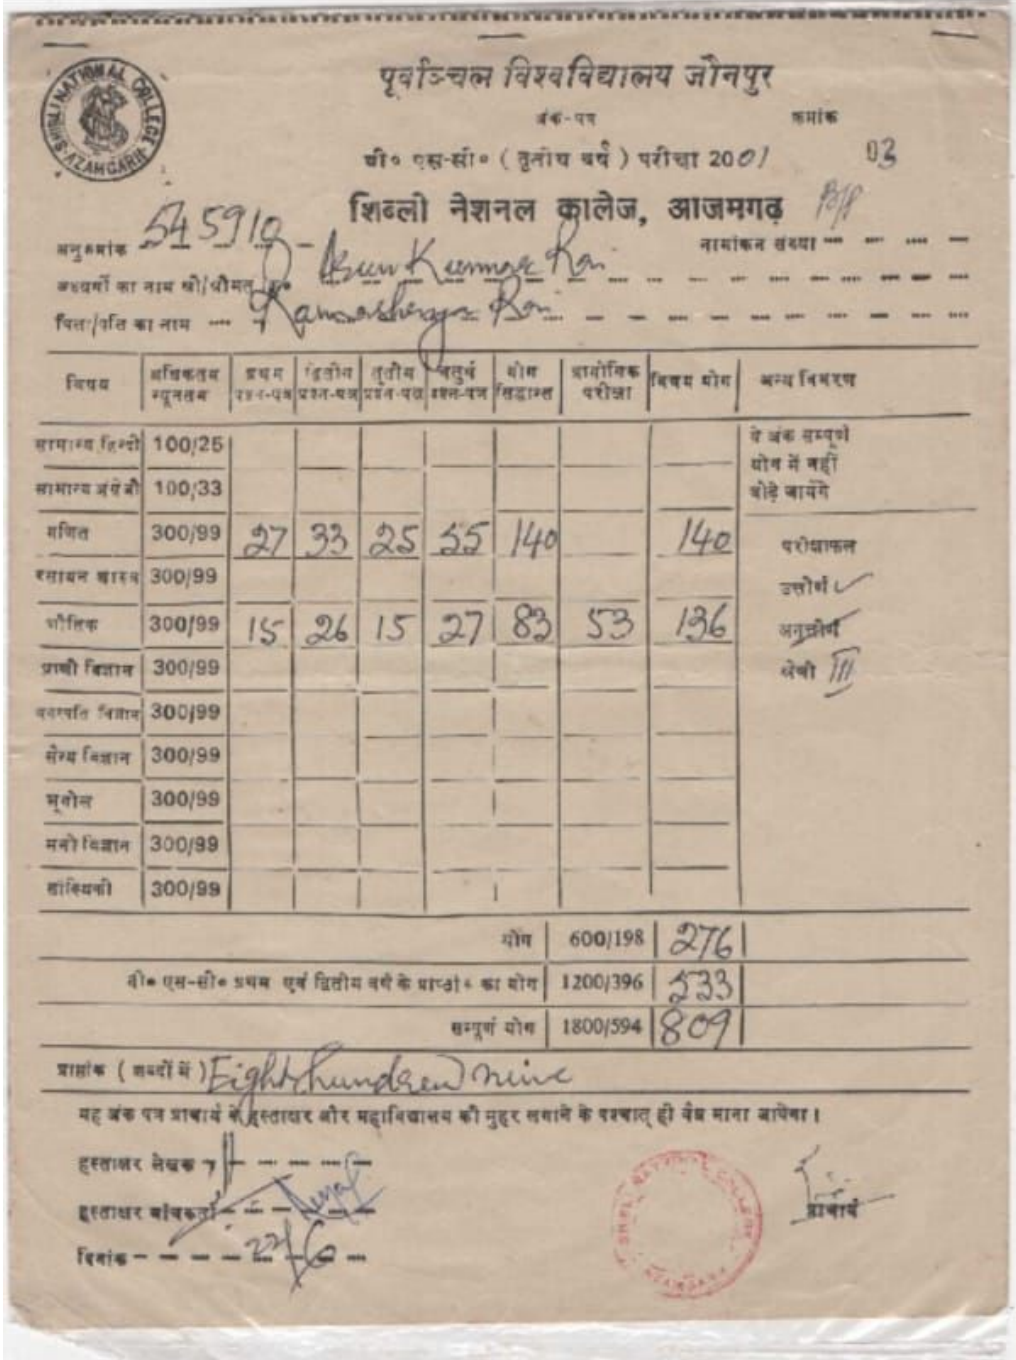 SHIBLI NATIONAL COLLEGE AZAMGARH
पूर्वाञ्चल विश्वविद्यालय जौनपुर
अंक-पत्र क्रमांक
बी० एस-सी० ( तृतीय वर्ष ) परीक्षा 2001 03
शिब्ली नेशनल कालेज, आजमगढ़
अनुक्रमांक 545910 नामांकन संख्या
अभ्यर्थी का नाम श्री/श्रीमती Kumar Rai
पिता/पति का नाम Ramashraya Rai
विषय अधिकतम न्यूनतम प्रथम प्रश्न-पत्र द्वितीय प्रश्न-पत्र तृतीय प्रश्न-पत्र चतुर्थ प्रश्न-पत्र योग सिद्धान्त प्रायोगिक परीक्षा विषय योग अन्य विवरण
सामान्य हिन्दी 100/25 ये अंक सम्पूर्ण योग में नहीं जोड़े जायेंगे
सामान्य अंग्रेजी 100/33
गणित 300/99 27 33 25 55 140 140 परीक्षाफल
रसायन शास्त्र 300/99 उत्तीर्ण
भौतिक 300/99 15 26 15 27 83 53 136 अनुत्तीर्ण
प्राणी विज्ञान 300/99 श्रेणी III
वनस्पति विज्ञान 300/99
सैन्य विज्ञान 300/99
भूगोल 300/99
मनो विज्ञान 300/99
सांख्यिकी 300/99
योग 600/198 276
बी० एस-सी० प्रथम एवं द्वितीय वर्ष के प्राप्तांक का योग 1200/396 533
सम्पूर्ण योग 1800/594 809
प्राप्तांक ( शब्दों में ) Eight hundred nine
यह अंक पत्र प्राचार्य के हस्ताक्षर और महाविद्यालय की मुहर लगाने के पश्चात् ही वैध माना जायेगा।
हस्ताक्षर लेखक
हस्ताक्षर जांचकर्ता
प्राचार्य
दिनांक 22/6